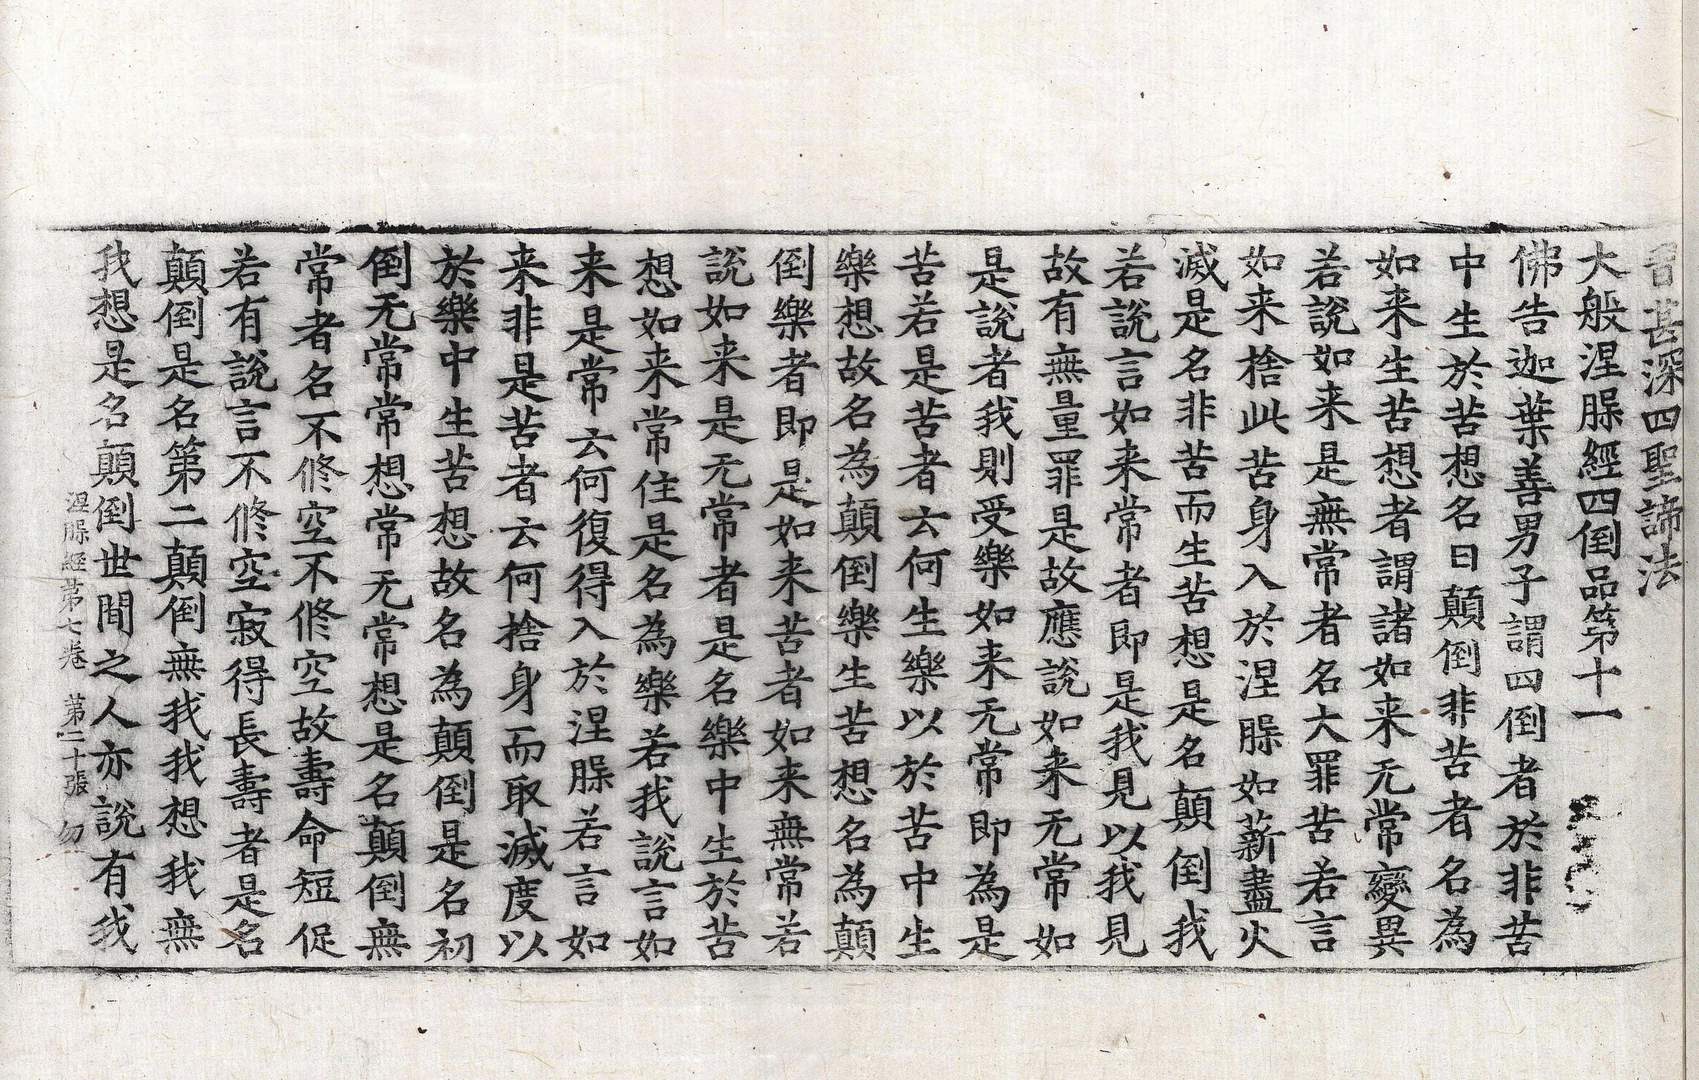 甚深四聖諦法
大般涅槃經四倒品第十一
佛告迦葉善男子謂四倒者於非苦
中生於苦想名曰顛倒非苦者名為
如来生苦想者謂諸如来无常變異
若說如来是無常者名大罪苦若言
如来捨此苦身入於涅槃如薪盡火
滅是名非苦而生苦想是名顛倒我
若說言如来常者即是我見以我見
故有無量罪是故應說如来无常如
是說者我則受樂如来无常即為是
苦若是苦者云何生樂以於苦中生
樂想故名為顛倒樂生苦想名為顛
倒樂者即是如来苦者如来無常若
說如来是无常者是名樂中生於苦
想如来常住是名為樂若我說言如
来是常云何復得入於涅槃若言如
来非是苦者云何捨身而取滅度以
於樂中生苦想故名為顛倒是名初
倒无常常想常无常想是名顛倒無
常者名不修空不修空故壽命短促
若有說言不修空寂得長壽者是名
顛倒是名第二顛倒無我我想我無
我想是名顛倒世間之人亦說有我
涅槃経第七卷 第二十張 勿